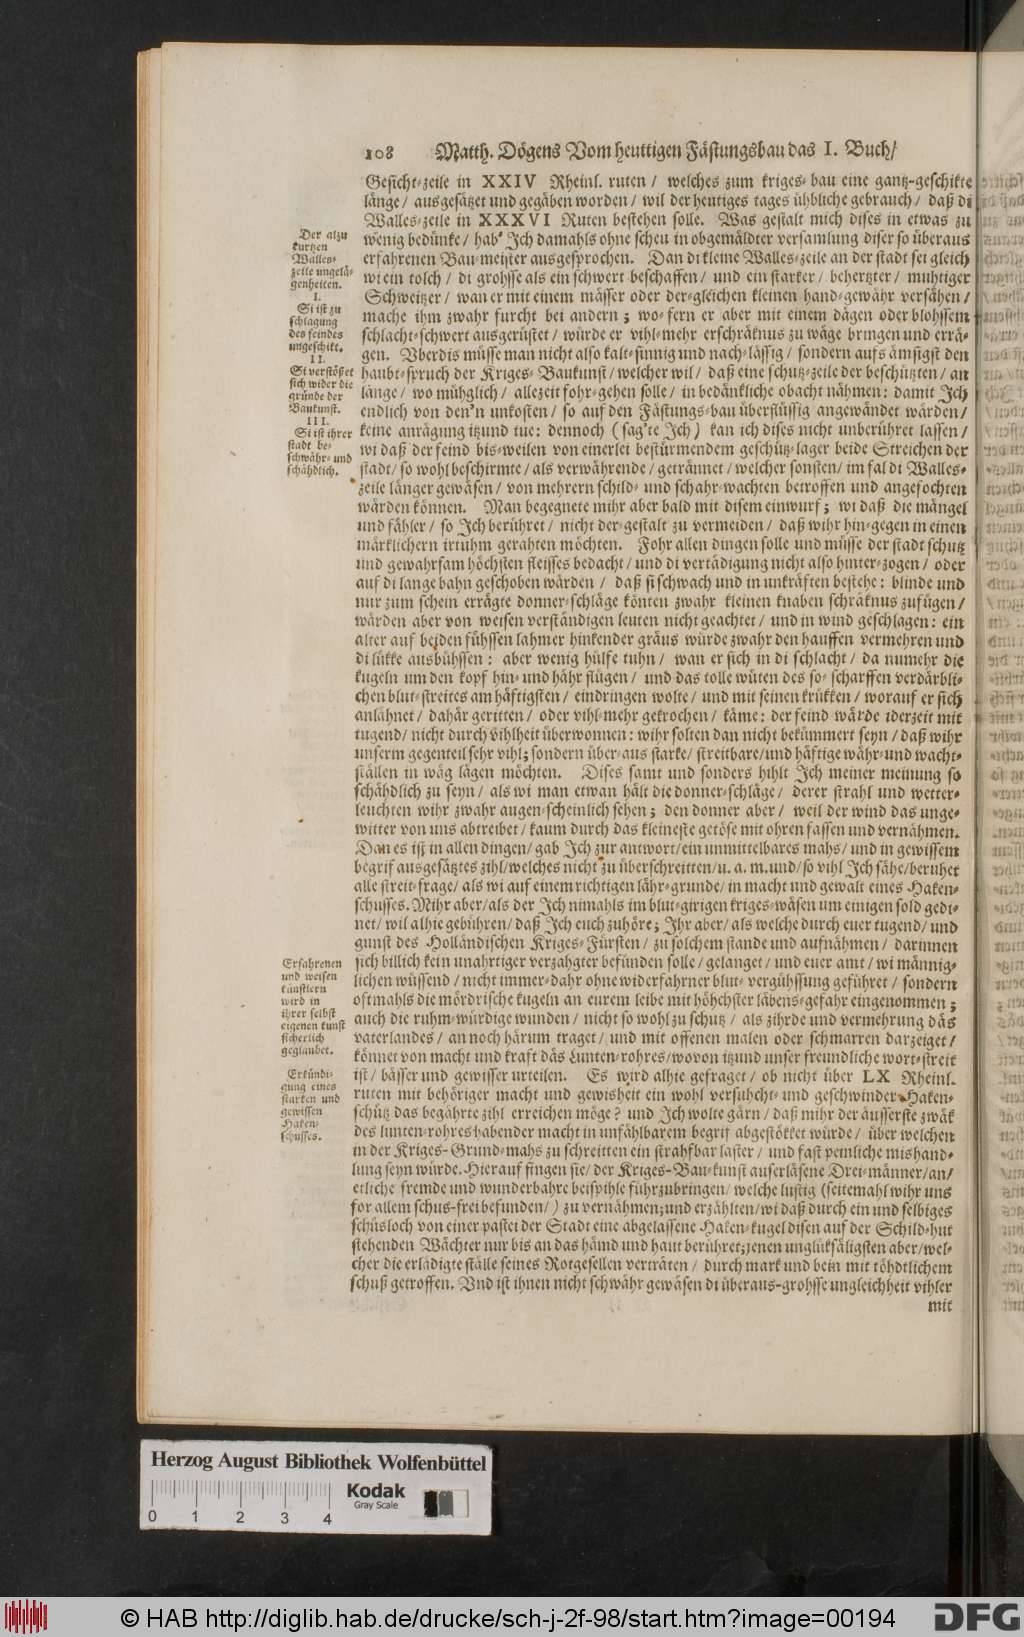 108 Matth. Dögens Vom heuttigen Fästungsbau das I. Buch/
Gesicht-zeile in XXIV Rheinl. ruten / welches zum kriges-bau eine gantz-geschikte
länge / ausgesätzet und gegäben worden / wil der heutiges tages ühbliche gebrauch / daß di
Walles-zeile in XXXVI Ruten bestehen solle. Was gestalt mich dises in etwas zu
wenig bedünke / hab' Ich damahls ohne scheu in obgemäldter versamlung diser so überaus
erfahrenen Bau-meister ausgesprochen. Dan di kleine Walles-zeile an der stadt sei gleich
wi ein tolch / di grohsse als ein schwert beschaffen / und ein starker / behertzter / muhtiger
Schweitzer / wan er mit einem mässer oder der-gleichen kleinen hand-gewähr versähen /
mache ihm zwahr furcht bei andern ; wo-fern er aber mit einem dägen oder blohssem
schlacht-schwert ausgerüstet / würde er vihl-mehr erschräknus zu wäge bringen und errä-
gen. Vberdis müsse man nicht also kalt-sinnig und nach-lässig / sondern aufs ämsigst den
haubt-spruch der Kriges-Baukunst / welcher wil / daß eine schutz-zeile der beschützten / an
länge / wo mühglich / allezeit fohr-gehen solle / in bedänkliche obacht nähmen : damit Ich
endlich von den'n unkosten / so auf den Fästungs-bau überflüssig angewändet wärden /
keine anrägung itzund tue : dennoch ( sag'te Ich ) kan ich dises nicht unberühret lassen /
wi daß der feind bis-weilen von einerlei bestürmendem geschütz-lager beide Streichen der
stadt / so wohl beschirmte / als verwährende / geträннet / welcher sonsten / im fal di Walles-
zeile länger gewäsen / von mehrern schild- und schahr-wachten betroffen und angefochten
wärden können. Man begegnete mihr aber bald mit disem einwurf ; wi daß die mängel
und fähler / so Ich berühret / nicht der-gestalt zu vermeiden / daß wihr hin-gegen in einen
märklichern irtuhm gerahten möchten. Fohr allen dingen solle und müsse der stadt schutz
und gewahrsam höchsten fleisses bedacht / und di vertädigung nicht also hinter-zogen / oder
auf di lange bahn geschoben wärden / daß si schwach und in unkräften bestehe : blinde und
nur zum schein errägte donner-schläge könten zwahr kleinen knaben schräknus zufügen /
wärden aber von weisen verständigen leuten nicht geachtet / und in wind geschlagen : ein
alter auf beiden fühssen lahmer hinkender gräus würde zwahr den hauffen vermehren und
di lükke ausbühssen : aber wenig hülfe tuhn / wan er sich in di schlacht / da numehr die
kugeln um den kopf hin- und hähr flügen / und das tolle wüten des so-scharffen verdärbli-
chen blut-streites am häftigsten / eindringen wolte / und mit seinen krükken / worauf er sich
anlähnet / dahär geritten / oder vihl-mehr gekrochen / käme : der feind wärde iderzeit mit
tugend / nicht durch vihlheit überwonnen : wihr solten dan nicht bekümmert seyn / daß wihr
unserm gegenteil sehr vihl ; sondern über-aus starke / streitbare / und häftige währ- und wacht-
ställen in wäg lägen möchten. Dises samt und sonders hihlt Ich meiner meinung so
schähdlich zu seyn / als wi man etwan hält die donner-schläge / derer strahl und wetter-
leuchten wihr zwahr augen-scheinlich sehen ; den donner aber / weil der wind das unge-
witter von uns abtreibet / kaum durch das kleineste getöse mit ohren fassen und vernähmen.
Dan es ist in allen dingen / gab Ich zur antwort / ein unmittelbares mahs / und in gewissem
begrif ausgesätztes zihl / welches nicht zu überschreitten / u. a. m. und / so vihl Ich sähe / beruhet
alle streit-frage / als wi auf einem richtigen lähr-grunde / in macht und gewalt eines Haken-
schusses. Mihr aber / als der Ich nimahls im blut-girigen kriges-wäsen um einigen sold gedi-
net / wil alhie gebühren / daß Ich euch zuhöre ; Ihr aber / als welche durch euer tugend / und
gunst des Holländischen Kriges-Fürsten / zu solchem stande und aufnähmen / darinnen
sich billich kein unahrtiger verzahgter befünden solle / gelanget / und euer amt / wi männig-
lichen wüssend / nicht immer-dahr ohne widerfahrner blut-vergühssung geführet / sondern
oftmahls die mördrische kugeln an eurem leibe mit höhchster läbens-gefahr eingenommen ;
auch die ruhm-würdige wunden / nicht so wohl zu schutz / als zihrde und vermehrung däs
vaterlandes / an noch härum traget / und mit offenen malen oder schmarren darzeiget /
könnet von macht und kraft däs Lunten-rohres / wovon itzund unser freundliche wort-streit
ist / bässer und gewisser urteilen. Es wird alhie gefraget / ob nicht über LX Rheinl.
ruten mit behöriger macht und gewisheit ein wohl versuhcht- und geschwinder Haken-
schütz das begährte zihl erreichen möge ? und Ich wolte gärn / daß mihr der äusserste zwäk
des lunten-rohres habender macht in unfählbarem begrif abgestökket würde / über welchen
in der Kriges-Grund-mahs zu schreitten ein strahfbar laster / und fast peinliche mishand-
lung seyn würde. Hierauf fingen sie / der Kriges-Bau-kunst auserläsene Drei-männer / an /
etliche fremde und wunderbahre beispihle führzubringen / welche lustig ( seitemahl wihr uns
for allem schus-frei befunden / ) zu vernähmen ; und erzählten / wi daß durch ein und selbiges
schüsloch von einer pastei der Stadt eine abgelassene Haken-kugel disen auf der Schild-hut
stehenden Wächter nur bis an das hämd und haut berühret ; jenen unglükfäligsten aber / wel-
cher die erlädigte ställe seines Rotgesellen verträten / durch mark und bein mit töhdtlichem
schuß getroffen. Vnd ist ihnen nicht schwähr gewäsen di überaus-grohsse ungleichheit vihler
mit
Der alzu
kurtzen
Walles-
zeile ungelä-
genheiten.
I.
Si ist zu
schlagung
des feindes
ungeschikt.
II.
Si verstößet
sich wider die
gründe der
Baukunst.
III.
Si ist ihrer
stadt be-
schwähr- und
schähdlich.
Erfahrenen
und weisen
künstlern
wird in
ihrer selbst
eigenen kunst
sicherlich
geglaubet.
Erkündi-
gung eines
starken und
gewissen
Haken-
schusses.
Herzog August Bibliothek Wolfenbüttel
Kodak
Gray Scale
0 1 2 3 4
© HAB http://diglib.hab.de/drucke/sch-j-2f-98/start.htm?image=00194
DFG